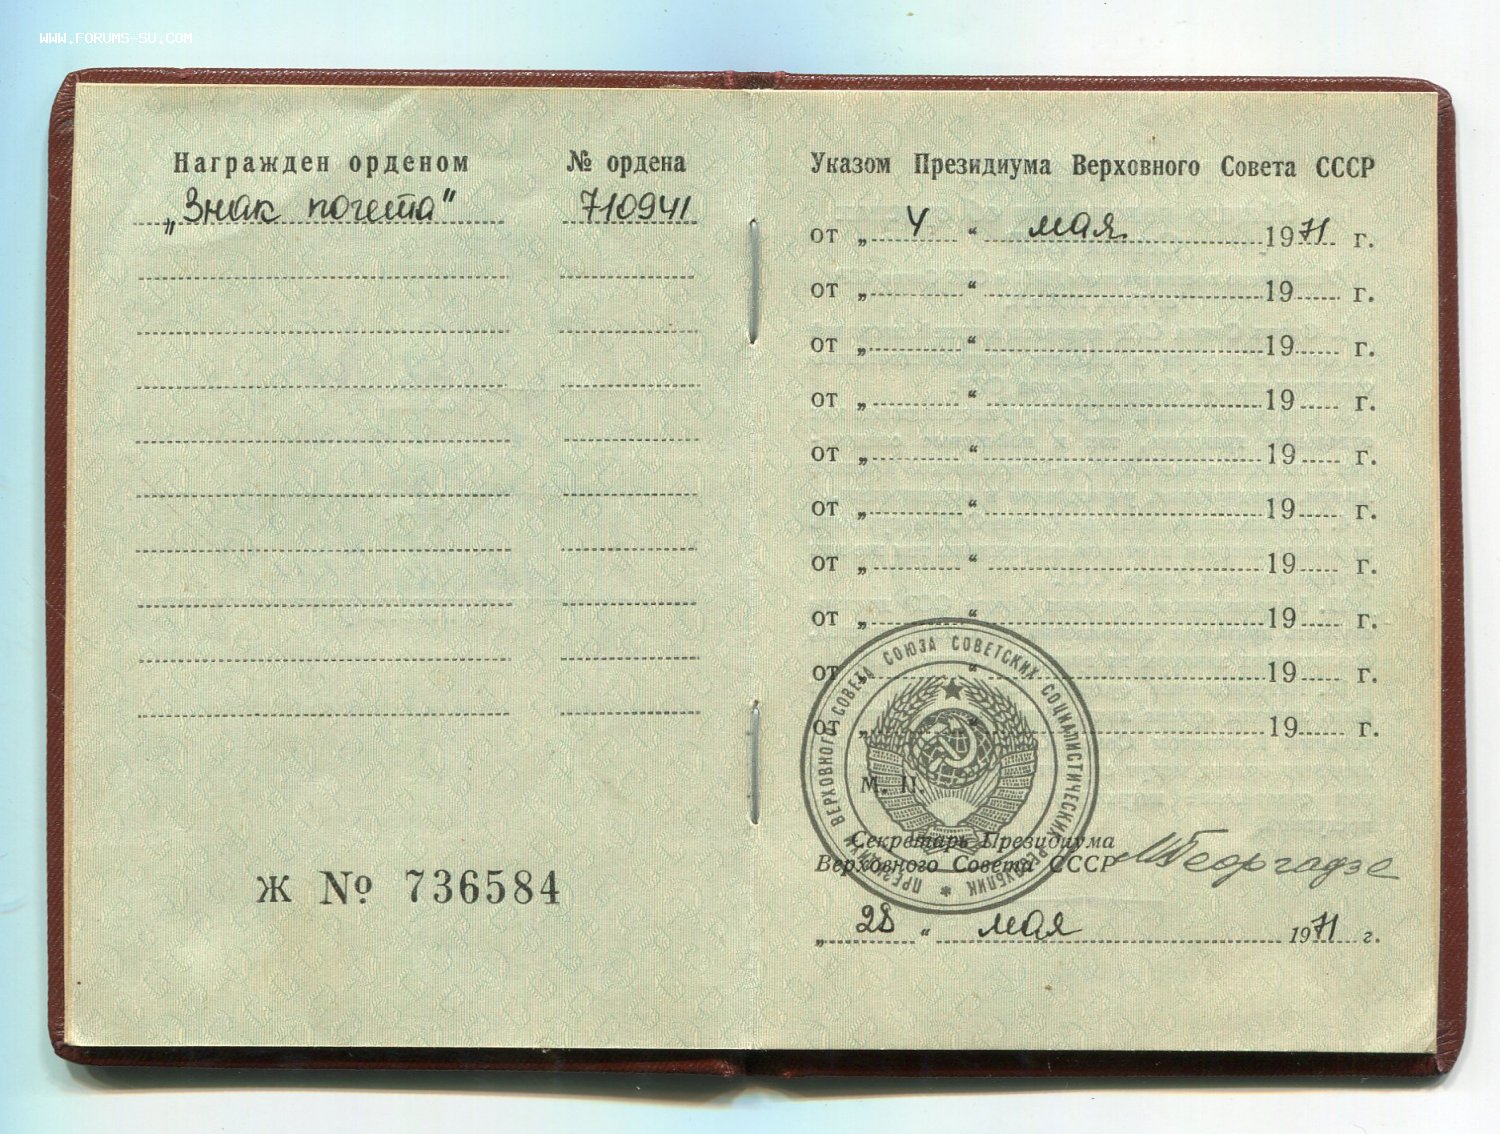 WWW.FORUMS-SU.COM
Награжден орденом № ордена
„Знак почета" 710941
Ж № 736584
Указом Президиума Верховного Совета СССР
от „ 4 “ мая 1971 г.
от „ “ 19 г.
от „ “ 19 г.
от „ “ 19 г.
от „ “ 19 г.
от „ “ 19 г.
от „ “ 19 г.
от „ “ 19 г.
от „ “ 19 г.
от „ “ 19 г.
ПРЕЗИДИУМ ВЕРХОВНОГО СОВЕТА СОЮЗА СОВЕТСКИХ СОЦИАЛИСТИЧЕСКИХ РЕСПУБЛИК *
М. П.
Секретарь Президиума
Верховного Совета СССР МГеоргадзе
„ 28 “ мая 1971 г.